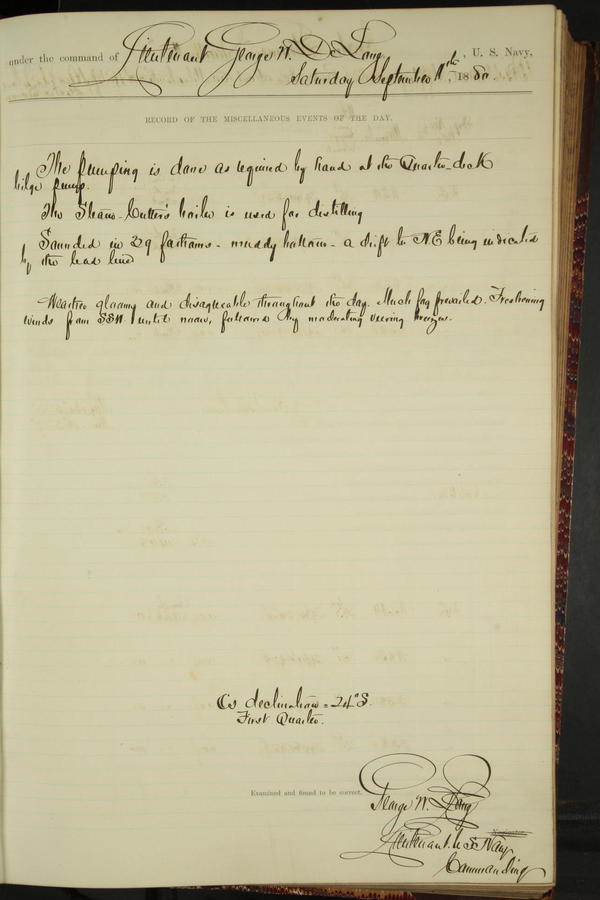 under the command of Lieutenant George W. De Long, U. S. Navy,
Saturday September 11th, 1880.
RECORD OF THE MISCELLANEOUS EVENTS OF THE DAY.
The pumping is done as required by hand at the Quarter-deck
bilge pump.
The Steam-Cutter's boiler is used for distilling
Sounded in 29 fathoms - muddy bottom - a drift to NE being indicated
by the lead line
Weather gloomy and disagreeable throughout the day. Much fog prevailed. Freshening
winds from SSW until noon, followed by moderating veering breezes.
☾s declination = 24° S.
First Quarter.
Examined and found to be correct.
George W. De Long
Lieutenant U.S. Navy
Commanding